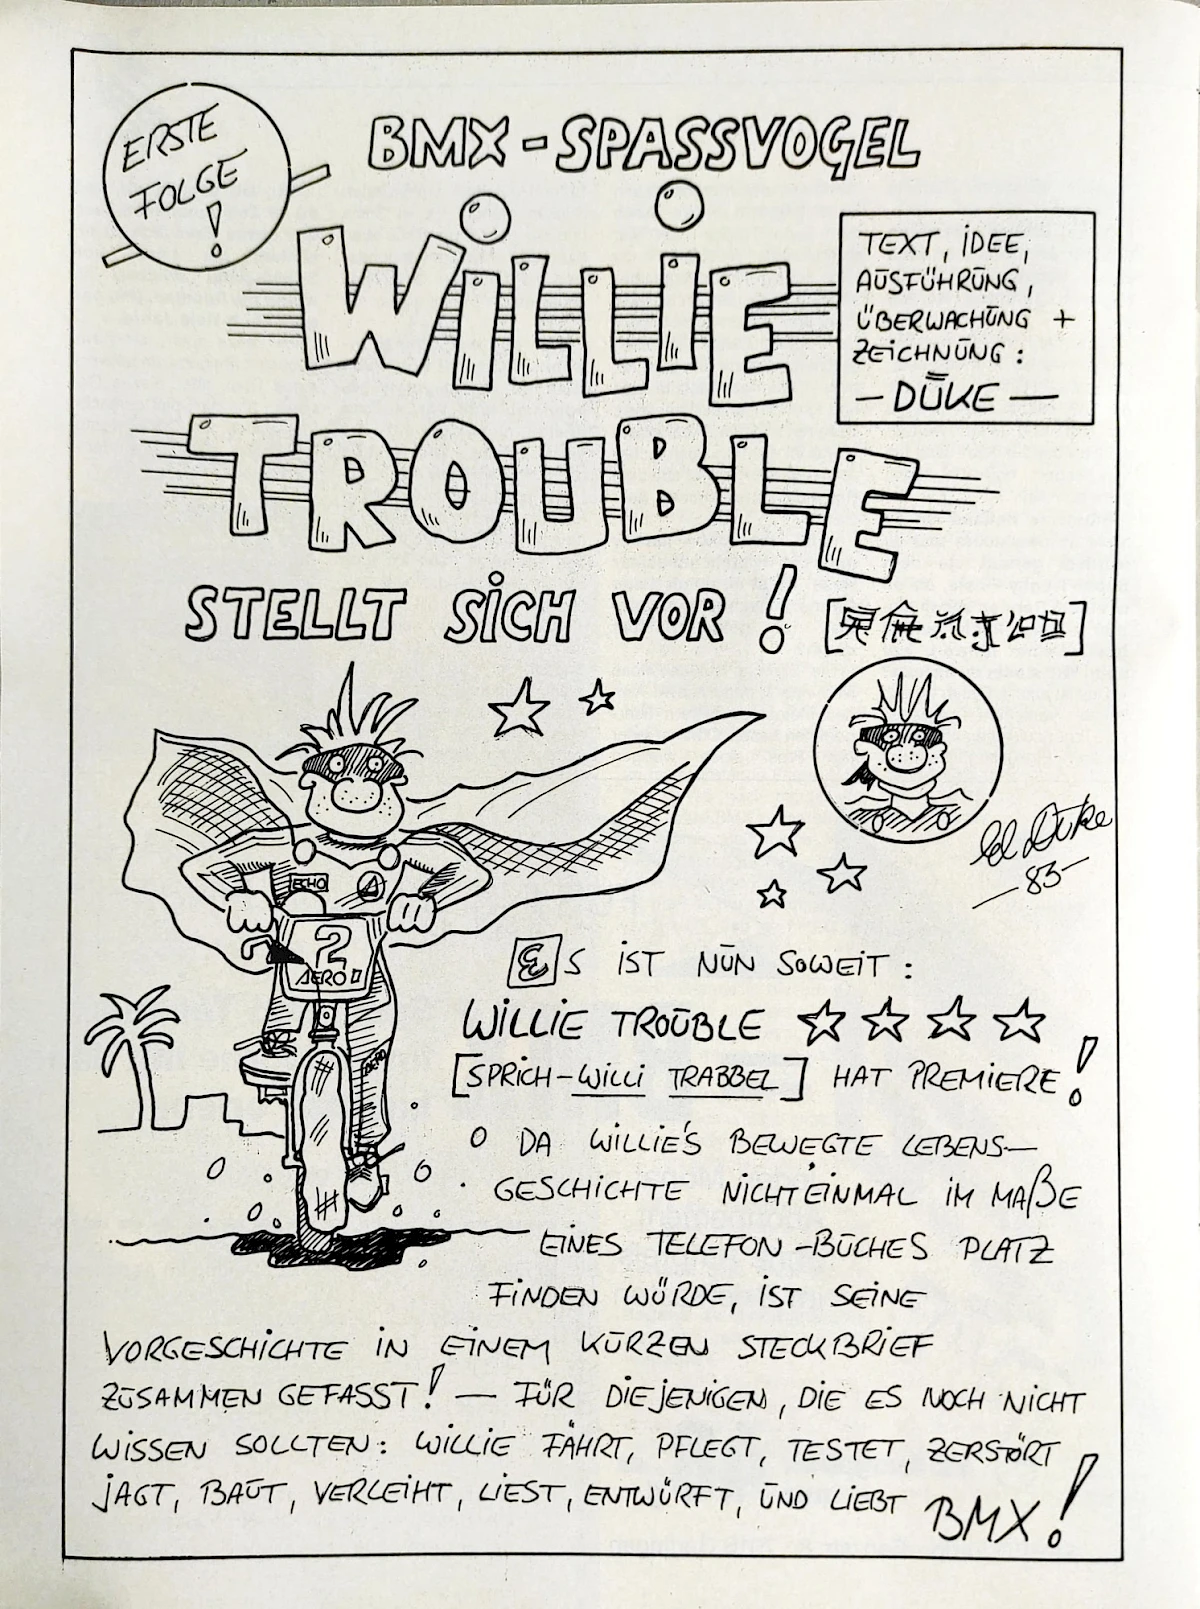 ERSTE
FOLGE
!
BMX-SPASSVOGEL
WILLIE
TROUBLE
STELLT SICH VOR!
TEXT, IDEE,
AUSFÜHRUNG,
ÜBERWACHUNG +
ZEICHNUNG:
— DUKE —
Duke
-83-
ECHO
2
AERO
AERO
ES IST NUN SOWEIT:
WILLIE TROUBLE ☆ ☆ ☆ ☆
[SPRICH-WILLI TRABBEL] HAT PREMIERE!
O DA WILLIE'S BEWEGTE LEBENS-
GESCHICHTE NICHTEINMAL IM MAßE
EINES TELEFON-BUCHES PLATZ
FINDEN WÜRDE, IST SEINE
VORGESCHICHTE IN EINEM KURZEN STECKBRIEF
ZUSAMMEN GEFASST! — FÜR DIEJENIGEN, DIE ES NOCH NICHT
WISSEN SOLLTEN: WILLIE FÄHRT, PFLEGT, TESTET, ZERSTÖRT
JAGT, BAUT, VERLEIHT, LIEST, ENTWÜRFT, UND LIEBT BMX!